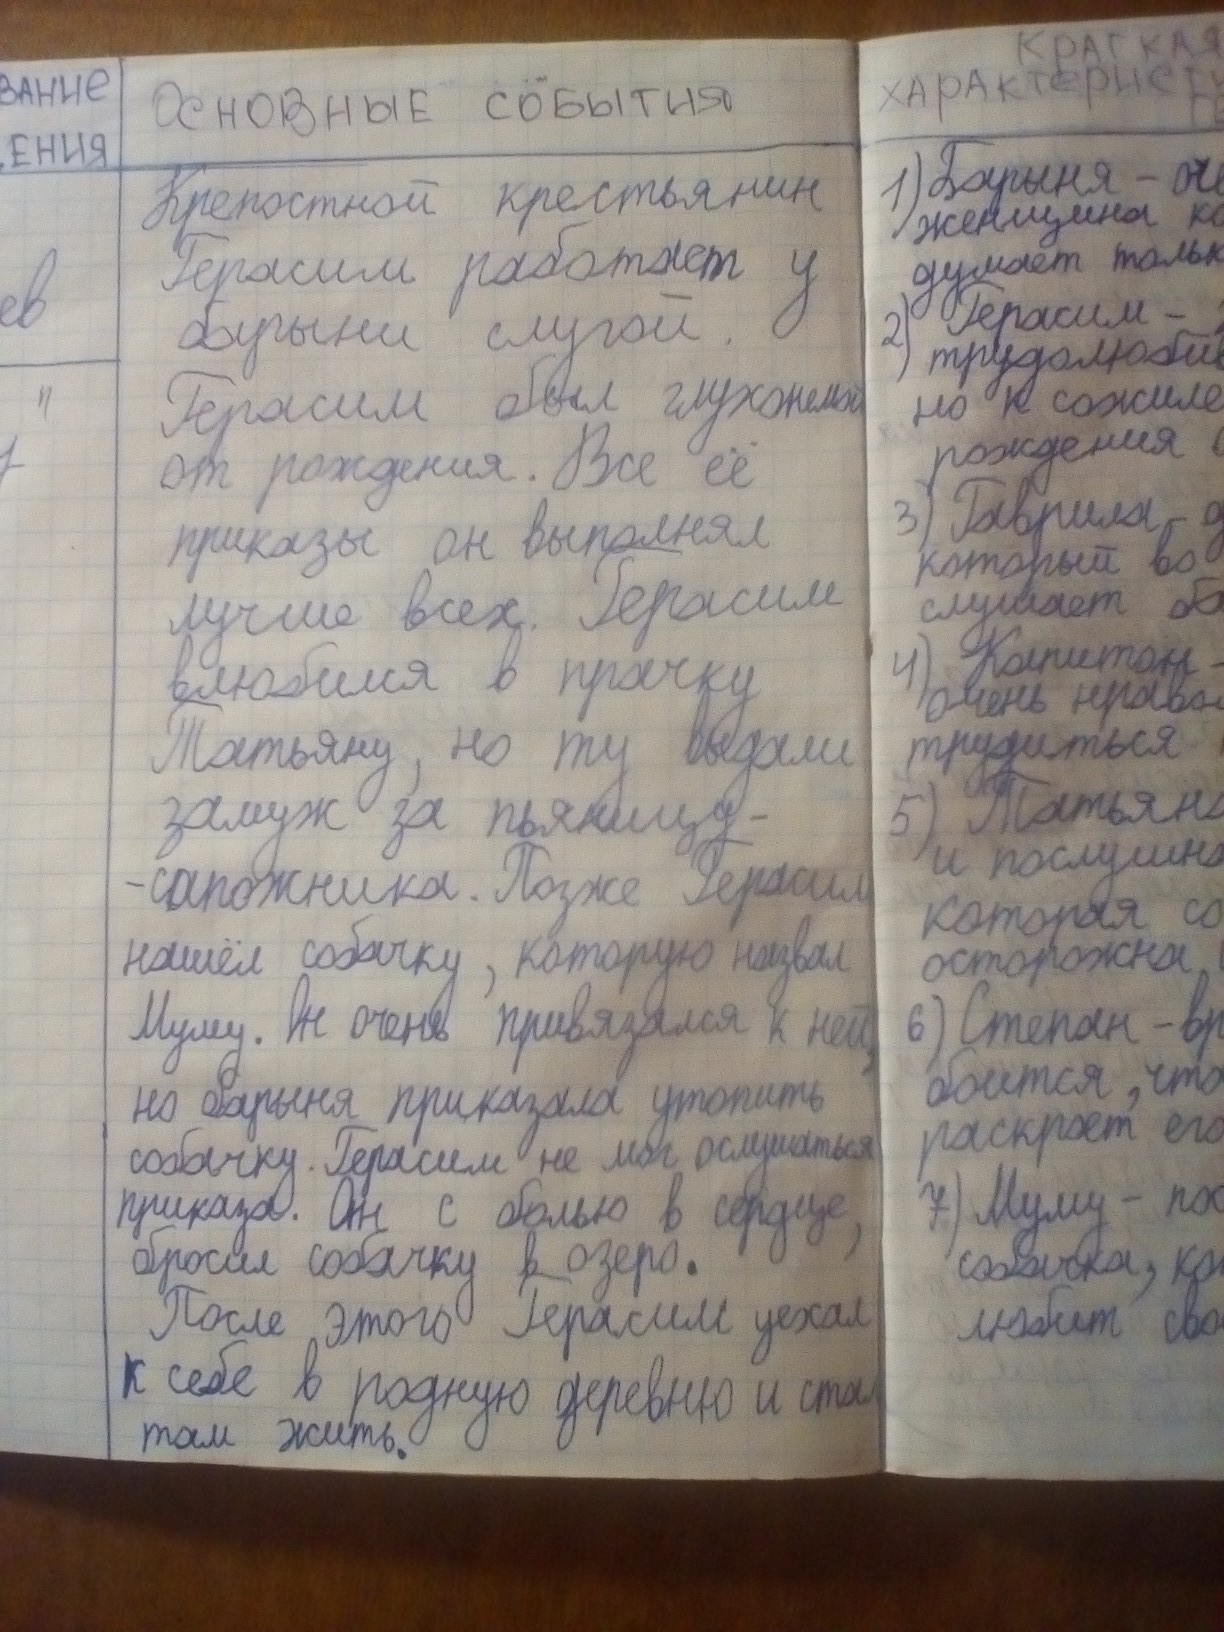 ВАНИЕ
ЕНИЯ
ев
"
ОСНОВНЫЕ СОБЫТИЯ
Крепостной крестьянин
Герасим работает у
барыни слугой.
Герасим был глухонемой
от рождения. Все её
приказы он выполнял
лучше всех. Герасим
влюбился в прачку
Татьяну, но ту выдали
замуж за пьяницу-
-сапожника. Позже Герасим
нашёл собачку, которую назвал
Муму. Он очень привязался к ней,
но барыня приказала утопить
собачку. Герасим не мог ослушаться
приказа. Он с болью в сердце,
бросил собачку в озеро.
После этого Герасим уехал
к себе в родную деревню и стал
там жить.
КРАТКАЯ
ХАРАКТЕРИСТ
1) Барыня - оче
женщина ко
думает тольк
2) Герасим -
трудолюбив
но к сожале
рождения
3) Гаврила -
который во
слушает ба
4) Капитон -
очень нрав
трудиться
5) Татьяна
и послушна
которая со
осторожна
6) Степан - вр
боится, что
раскроет его
7) Муму - пос
собачка, ко
любит сво